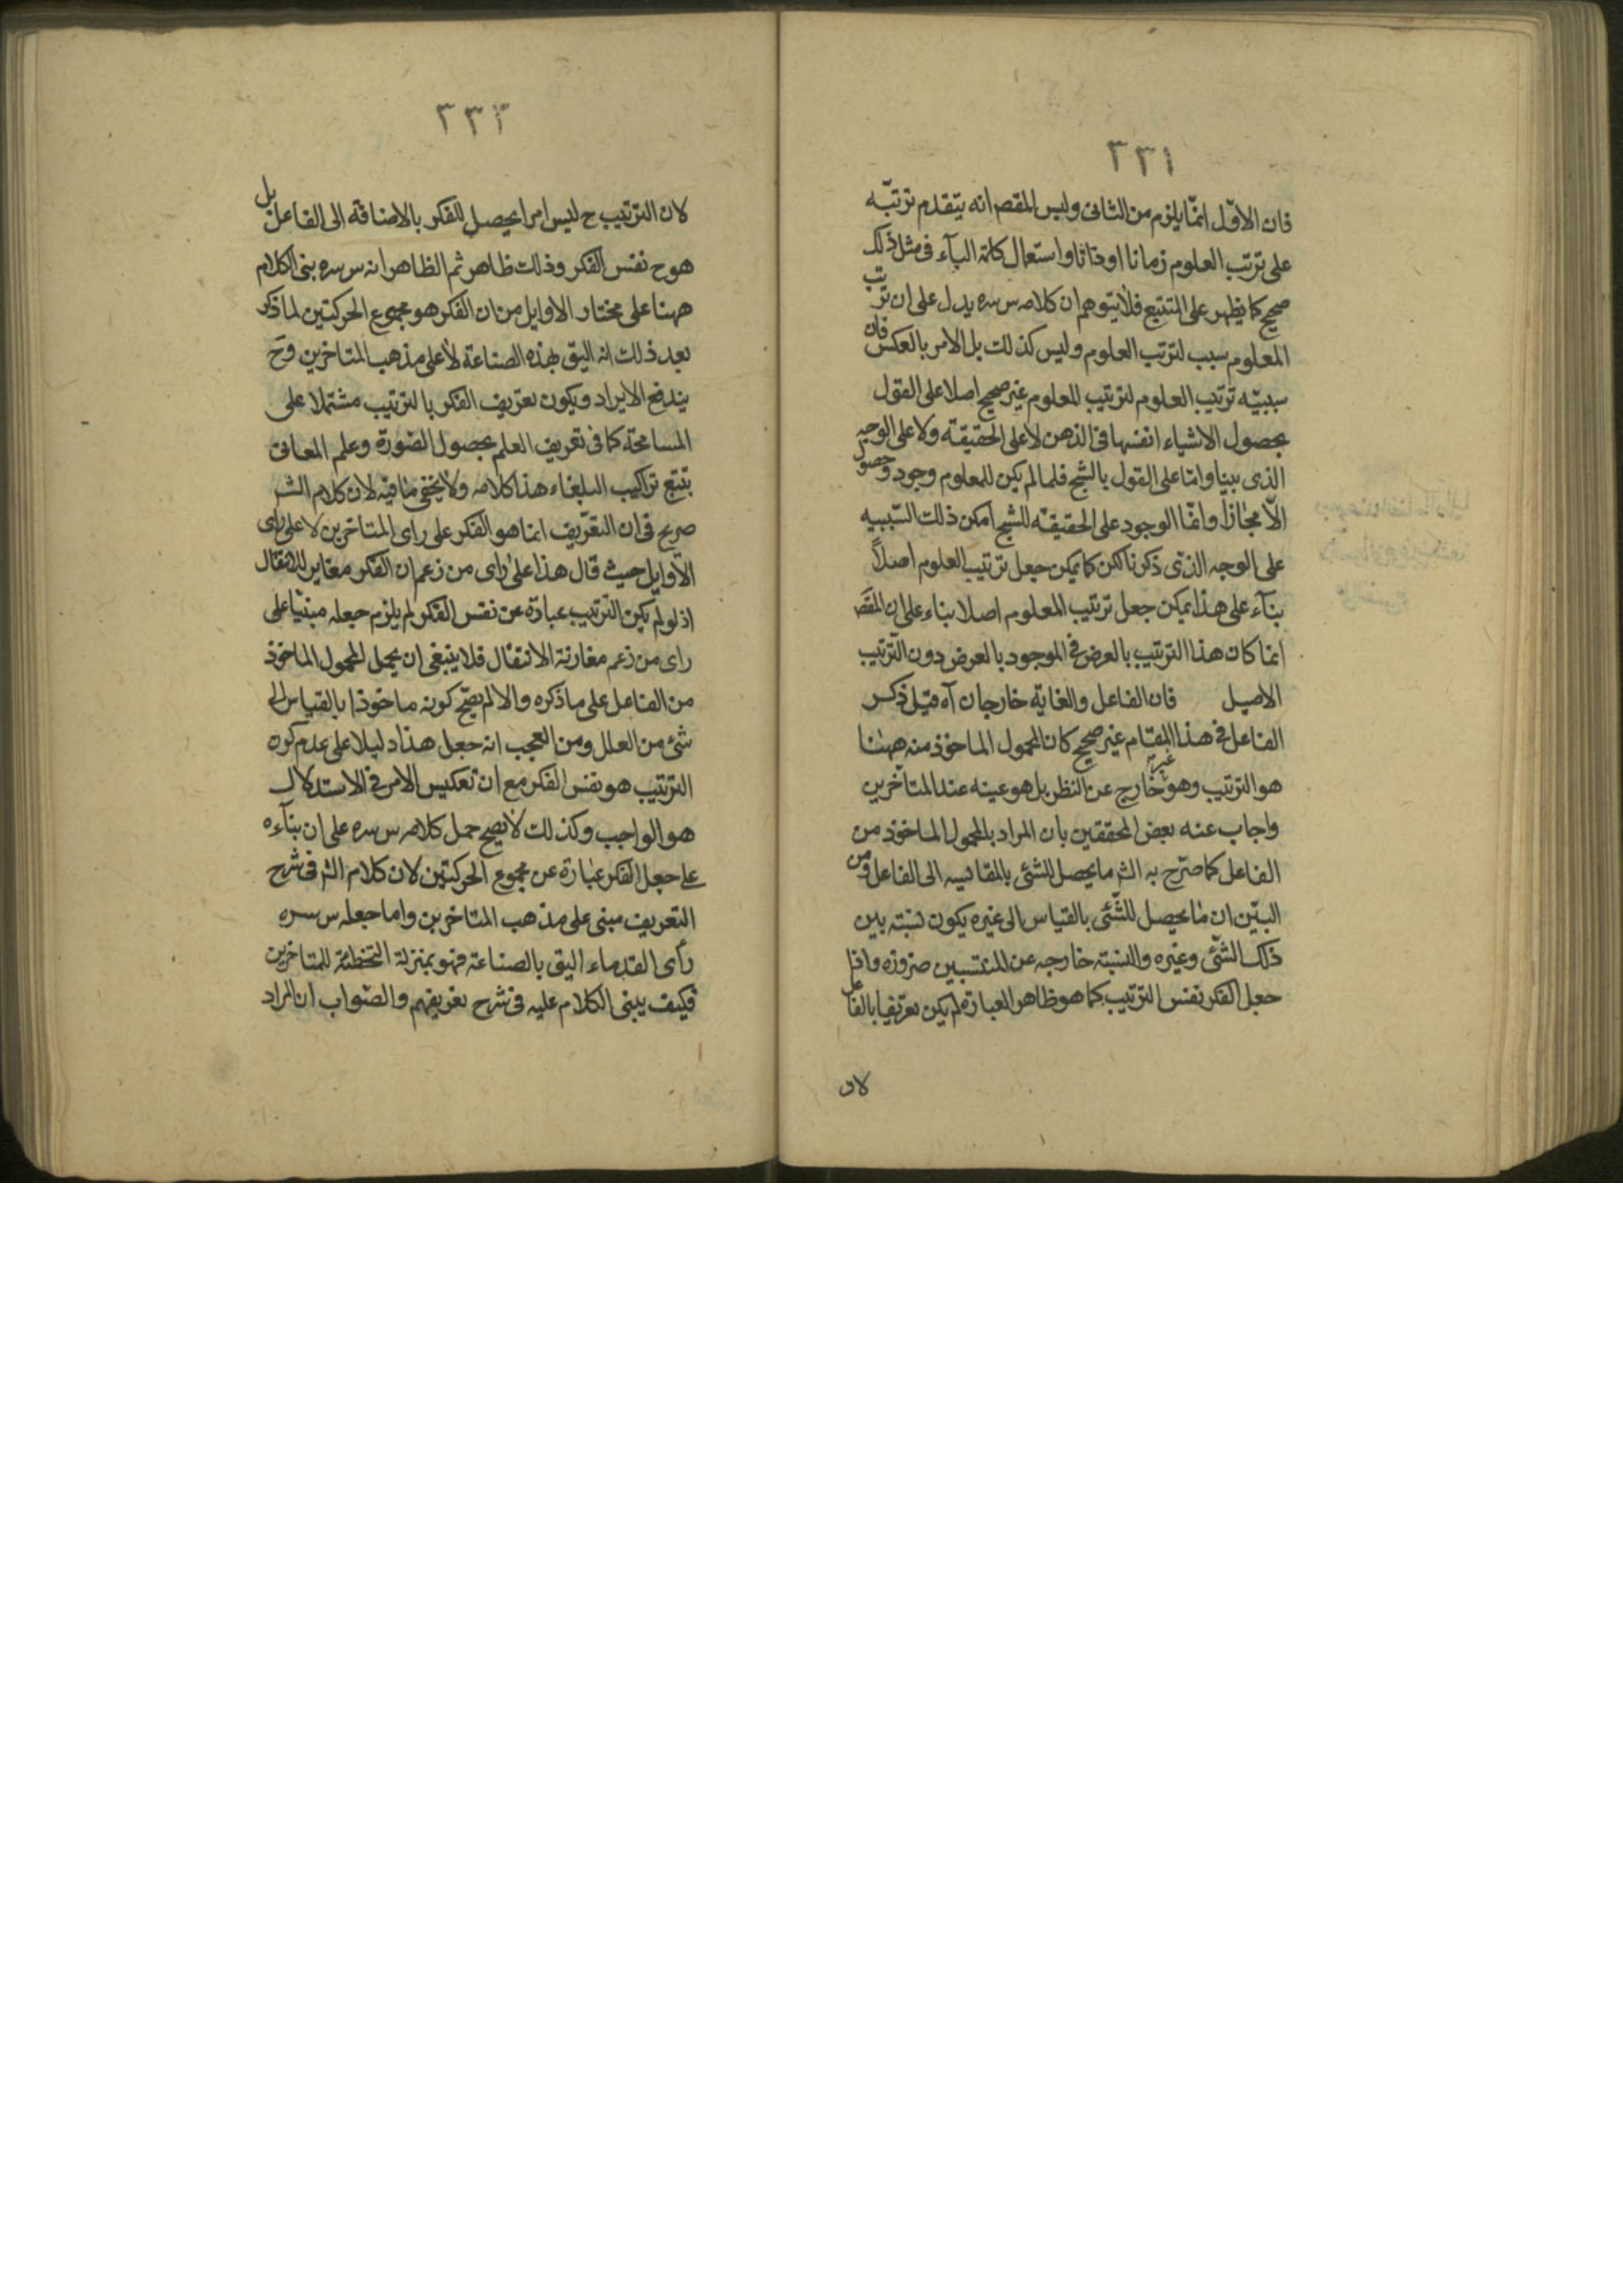 ٢٣١
فان الاوّل انمّا يلزم من الثانى وليس المقصم انه يتقدم ترتبّه
على ترتب العلوم زمانا او ذاتا واستعمال كلمة البآء فى مثل ذلك
صحيح كما يظهر على المتتبع فلا يتوهم ان كلامه س سره يدل على ان ترتب
المعلوم سبب لترتب العلوم وليس كذلك بل الامر بالعكس فان
سببيّه ترتيب العلوم لترتيب المعلوم غير صحيح اصلا على القول
بحصول الاشياء انفسها فى الذهن لا على الحقيقة ولا على الوجه
الذى بينا وامّا على القول بالشبح فلما لم يكن للمعلوم وجود وحصول
الاّ مجازاً وانمّا الوجود على الحقيقة للشبح امكن ذلك السّببيه
على الوجه الذى ذكرنا لكن كما يمكن جعل ترتيب العلوم اصلاً
بنآء على هذا يمكن جعل ترتيب المعلوم اصلا بناء على ان المقصَ
انما كان هذا الترتيب بالعرض فى الموجود بالعرض دون الترّتيب
الاصيل فان الفاعل والغاية خارجان آه قيل ذكر
الفاعل فى هذا المقام غير صحيح كان المحمول الماخوذ منه ههنا
هو الترتيب وهو غير خارج عن النظر بل هو عينه عند المتأخرين
واجاب عنه بعض المحققين بان المراد بالمحمول الماخوذ من
الفاعل كما صرّح به الشم ما يحصل للشئى بالمقائسه الى الفاعل ومن
البيّن ان ما يحصل للشّئى بالقياس الى غيره يكون نسبته بين
ذلك الشّئى وغيره والنسبة خارجه عن المنتسبين ضرورة واذا
جعل الفكر نفس الترتيب كما هو ظاهر العبارة لم يكن تعريفا بالفاعل
لان
٢٣٢
لان الترتيب ح ليس امرا يحصل للفكر بالاضافة الى الفاعل بل
هو ح نفس الفكر وذلك ظاهر ثم الظاهر انه س سره بنى الكلام
ههنا على مختار الاوايل من ان الفكر هو مجموع الحركتين لما ذكر
بعد ذلك انه اليق بهذه الصناعة لا على مذهب المتاخرين وح
يندفع الايراد ويكون تعريف الفكر بالترتيب مشتملا على
المسامحة كما فى تعريف العلم بحصول الصّورة وعلم المعانى
بتتبع تراكيب البلغاء هذا كلامه ولا يخفى ما فيه لان كلام الشر
صريح فى ان التعّريف انما هو الفكر على راى المتاخرين لا على راى
الاوايل حيث قال هذا على راى من زعم ان الفكر مغاير للانتقال
اذ لو لم يكن الترتيب عبارة عن نفس الفكر لم يلزم جعله مبنيا على
راى من زعم مغارنة الانتقال فلا ينبغى ان يحمل المحمول الماخوذ
من الفاعل على ما ذكره والا لم يصّح كونه ماخوذا بالقياس الى
شئ من العلل ومن العجب انه جعل هذا دليلا على عدم كون
الترتيب هو نفس الفكر مع ان تعكيس الامر فى الاستدلال
هو الواجب وكذلك لا يصح حمل كلامه س سره على ان بنآءه
على جعل الفكر عبارة عن مجموع الحركتين لان كلام الشر فى شرح
التعريف مبنى على مذهب المتاخرين واما جعله س سره
رأى القدماء اليق بالصناعة فهو بمنزلة التخطئة للمتاخرين
فكيف يبنى الكلام عليه فى شرح تعريفهم والصّواب ان المراد